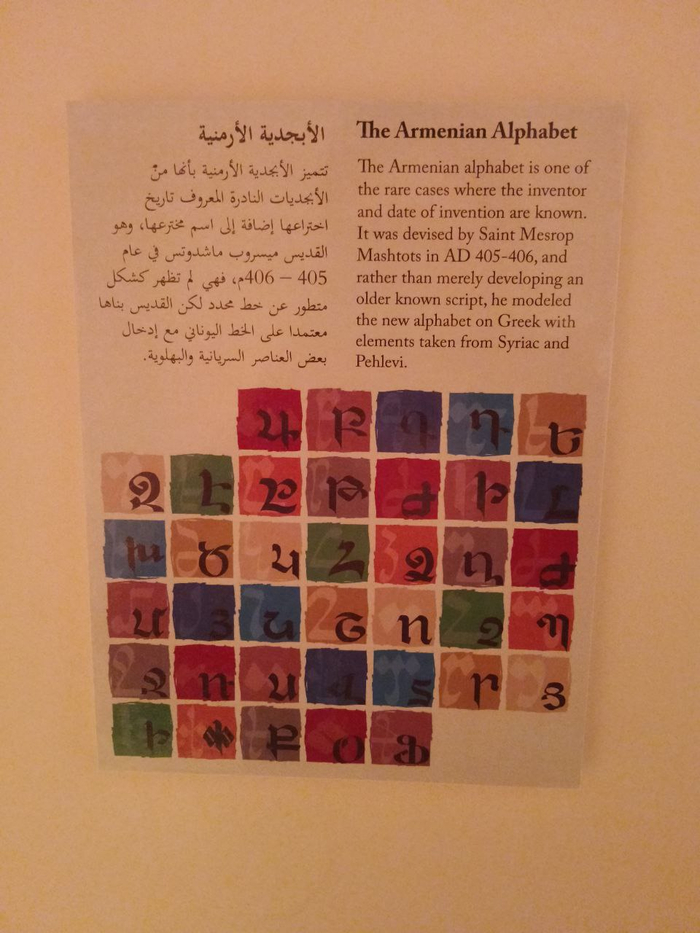 الأبجدية الأرمنية
تتميز الأبجدية الأرمنية بأنها منْ
الأبجديات النادرة المعروف تاريخ
اختراعها إضافة إلى اسم مخترعها، وهو
القديس ميسروب ماشدوتس في عام
405 – 406م، فهي لم تظهر كشكل
متطور عن خط محدد لكن القديس بناها
معتمدا على الخط اليوناني مع إدخال
بعض العناصر السريانية والبهلوية.
The Armenian Alphabet
The Armenian alphabet is one of
the rare cases where the inventor
and date of invention are known.
It was devised by Saint Mesrop
Mashtots in AD 405-406, and
rather than merely developing an
older known script, he modeled
the new alphabet on Greek with
elements taken from Syriac and
Pehlevi.
Ա Բ Գ Դ Ե
Զ Է Ը Թ Ժ Ի Լ
Խ Ծ Կ Հ Ձ Ղ Ճ
Մ Յ Ն Շ Ո Չ Պ
Ջ Ռ Ս Վ Տ Ր Ց
Ւ Փ Ք Օ Ֆ